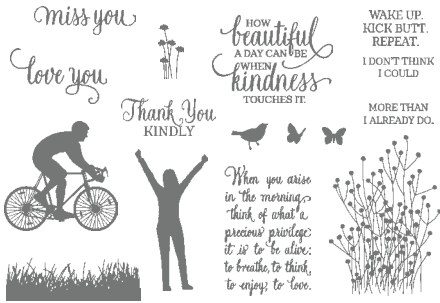 miss you
love you
Thank You
KINDLY
HOW
beautiful
A DAY CAN BE
WHEN
kindness
TOUCHES IT.
WAKE UP.
KICK BUTT.
REPEAT.
I DON'T THINK
I COULD
MORE THAN
I ALREADY DO.
When you arise
in the morning,
think of what a
precious privilege
it is to be alive:
to breathe, to think,
to enjoy, to love.